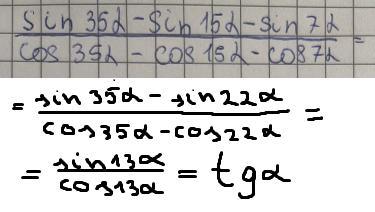 sin 35α - sin 15α - sin 7α
cos 35α - cos 15α - cos 7α =
= sin 35α - sin 22α
cos 35α - cos 22α =
= sin 13α
cos 13α = tg α